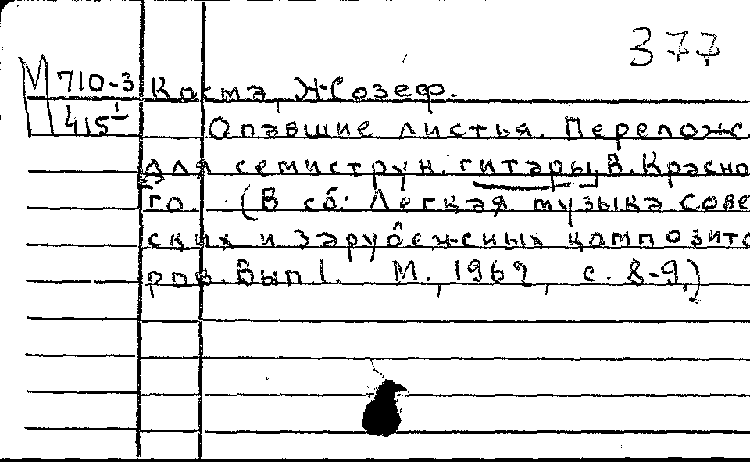 377
М 710-3 Косма, Жозеф.
415¹ Опавшие листья. Перелож.
для семиструн. гитары В. Красно
го. (В сб: Легкая музыка сове
ских и зарубежных композито
ров. Вып 1. М., 1962, с. 8-9.)